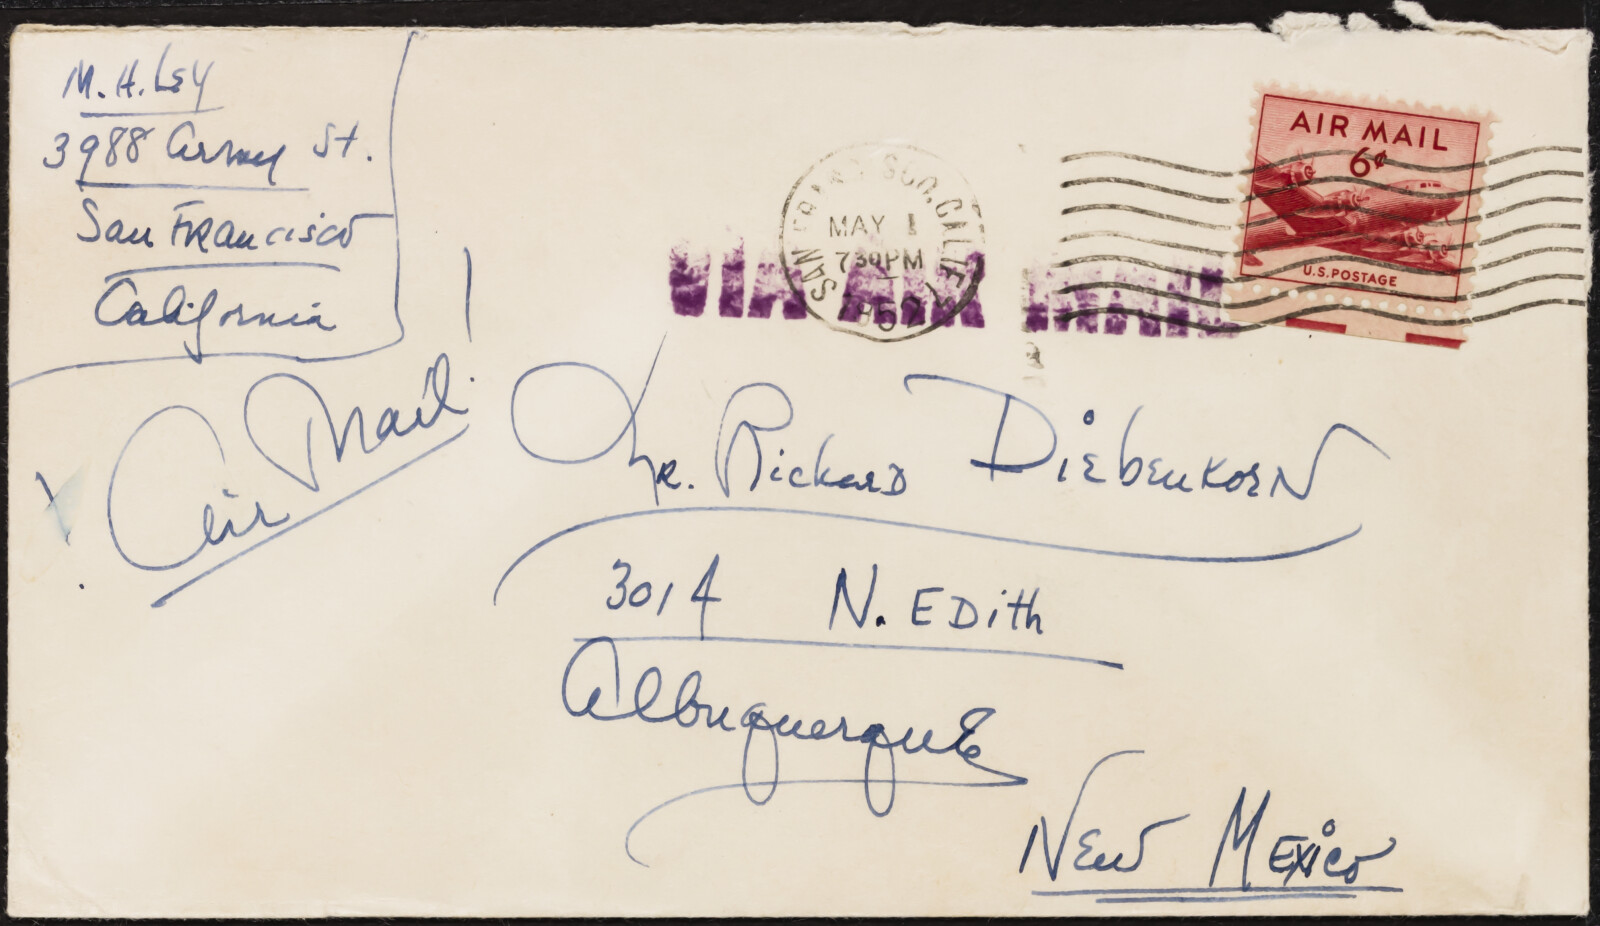 M. H. Ley
3988 Army St.
San Francisco
California
Air Mail
SAN FRANCISCO, CALIF.
MAY 1
730 PM
1952
VIA AIR MAIL
AIR MAIL
6¢
U.S. POSTAGE
Mr. Richard Diebenkorn
3014 N. Edith
Albuquerque
New Mexico